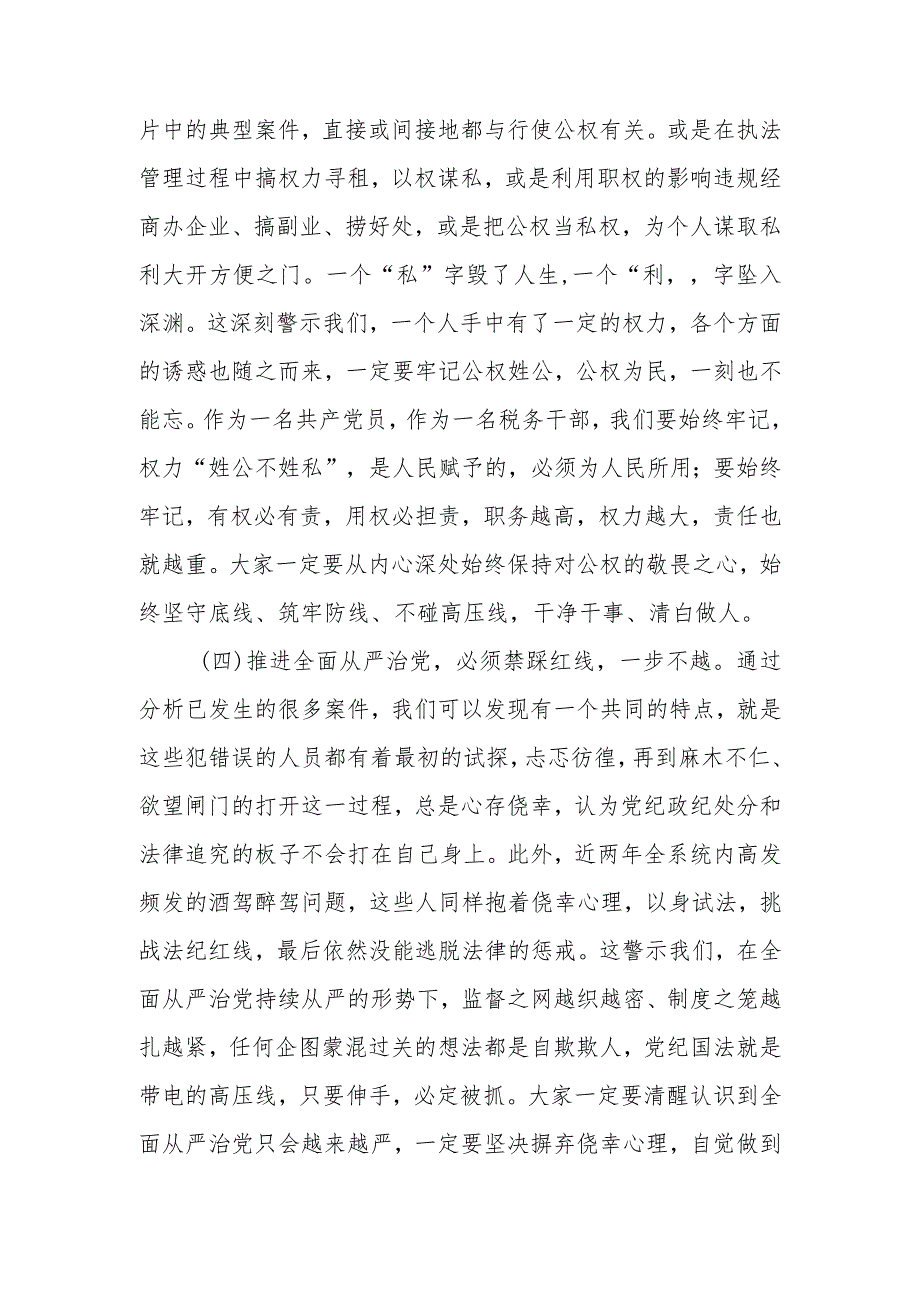 片中的典型案件，直接或间接地都与行使公权有关。或是在执法
管理过程中搞权力寻租，以权谋私，或是利用职权的影响违规经
商办企业、搞副业、捞好处，或是把公权当私权，为个人谋取私
利大开方便之门。一个“私”字毁了人生,一个“利，，字坠入
深渊。这深刻警示我们，一个人手中有了一定的权力，各个方面
的诱惑也随之而来，一定要牢记公权姓公，公权为民，一刻也不
能忘。作为一名共产党员，作为一名税务干部，我们要始终牢记，
权力“姓公不姓私”，是人民赋予的，必须为人民所用；要始终
牢记，有权必有责，用权必担责，职务越高，权力越大，责任也
就越重。大家一定要从内心深处始终保持对公权的敬畏之心，始
终坚守底线、筑牢防线、不碰高压线，干净干事、清白做人。
(四)推进全面从严治党，必须禁踩红线，一步不越。通过
分析已发生的很多案件，我们可以发现有一个共同的特点，就是
这些犯错误的人员都有着最初的试探，忐忑彷徨，再到麻木不仁、
欲望闸门的打开这一过程，总是心存侥幸，认为党纪政纪处分和
法律追究的板子不会打在自己身上。此外，近两年全系统内高发
频发的酒驾醉驾问题，这些人同样抱着侥幸心理，以身试法，挑
战法纪红线，最后依然没能逃脱法律的惩戒。这警示我们，在全
面从严治党持续从严的形势下，监督之网越织越密、制度之笼越
扎越紧，任何企图蒙混过关的想法都是自欺欺人，党纪国法就是
带电的高压线，只要伸手，必定被抓。大家一定要清醒认识到全
面从严治党只会越来越严，一定要坚决摒弃侥幸心理，自觉做到